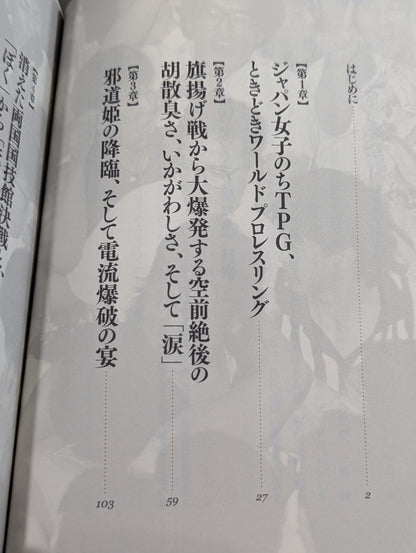 はじめに 2
【第1章】
ジャパン女子のちTPG、
ときどきワールドプロレスリング 27
【第2章】
旗揚げ戦から大爆発する空前絶後の
胡散臭さ、いかがわしさ、そして「涙」 59
【第3章】
邪道姫の降臨、そして電流爆破の宴 103
【第4章】
消えた両国国技館決戦